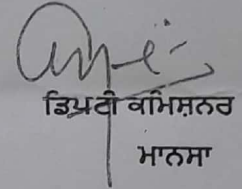 ਡਿਪਟੀ ਕਮਿਸ਼ਨਰ
ਮਾਨਸਾ